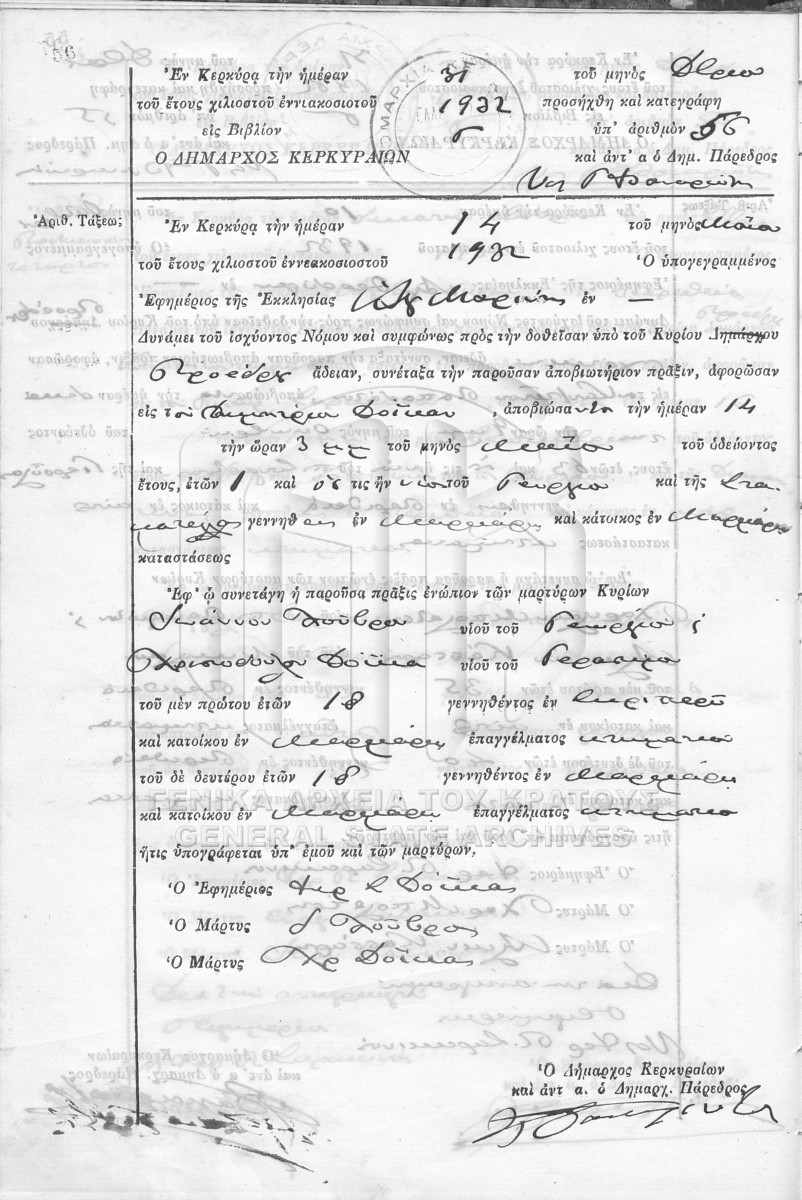 56
Ἐν Κερκύρᾳ τὴν ἡμέραν 31 τοῦ μηνὸς Δβριο
τοῦ ἔτους χιλιοστοῦ ἐννιακοσιοτοῦ 1932 προσήχθη καὶ κατεγράφη
εἰς Βιβλίον 6 ὑπ' ἀριθμὸν 56
Ο ΔΗΜΑΡΧΟΣ ΚΕΡΚΥΡΑΙΩΝ καὶ ἀντ' α ὁ Δημ. Πάρεδρος
Ἀριθ. Τάξεως
Ἐν Κερκύρᾳ τὴν ἡμέραν 14 τοῦ μηνὸς Μαΐου
τοῦ ἔτους χιλιοστοῦ ἐννεακοσιοστοῦ 1932 Ὁ ὑπογεγραμμένος
Ἐφημέριος τῆς Ἐκκλησίας Μαρίνης ἐν —
Δυνάμει τοῦ ἰσχύοντος Νόμου καὶ συμφώνως πρὸς τὴν δοθεῖσαν ὑπὸ τοῦ Κυρίου Δημάρχου
Προέδρου ἄδειαν, συνέταξα τὴν παροῦσαν ἀποβιωτήριον πρᾶξιν, ἀφορῶσαν
εἰς τὸν Δημήτριον Δόϊκαν, ἀποβιώσαντα τὴν ἡμέραν 14
τὴν ὥραν 3 μμ τοῦ μηνὸς Μαΐου τοῦ ὁδεύοντος
ἔτους, ἐτῶν 1 καὶ ὅς τις ἦν υἱὸς τοῦ Γεωργίου καὶ τῆς Στα
ματέλας γεννηθεὶς ἐν Μαρμάρῳ καὶ κάτοικος ἐν Μαρμάρῳ
καταστάσεως
Ἐφ' ᾧ συνετάγη ἡ παροῦσα πρᾶξις ἐνώπιον τῶν μαρτύρων Κυρίων
Ἰωάννου Κούβρα υἱοῦ τοῦ Γεωργίου ς
Χριστοδούλου Δόϊκα υἱοῦ τοῦ Γερασίμου
τοῦ μὲν πρώτου ἐτῶν 18 γεννηθέντος ἐν Σκριπερῷ
καὶ κατοίκου ἐν Μαρμάρῳ ἐπαγγέλματος κτηματίου
τοῦ δὲ δευτέρου ἐτῶν 18 γεννηθέντος ἐν Μαρμάρῳ
καὶ κατοίκου ἐν Μαρμάρῳ ἐπαγγέλματος κτηματίου
ΓΕΝΙΚΑ ΑΡΧΕΙΑ ΤΟΥ ΚΡΑΤΟΥΣ
GENERAL STATE ARCHIVES
ἥτις ὑπογράφεται ὑπ' ἐμοῦ καὶ τῶν μαρτύρων,
Ὁ Ἐφημέριος Δόϊκας
Ὁ Μάρτυς Κούβρας
Ὁ Μάρτυς Χρ Δόϊκας
Ὁ Δήμαρχος Κερκυραίων
καὶ ἀντ α. ὁ Δημαρχ. Πάρεδρος